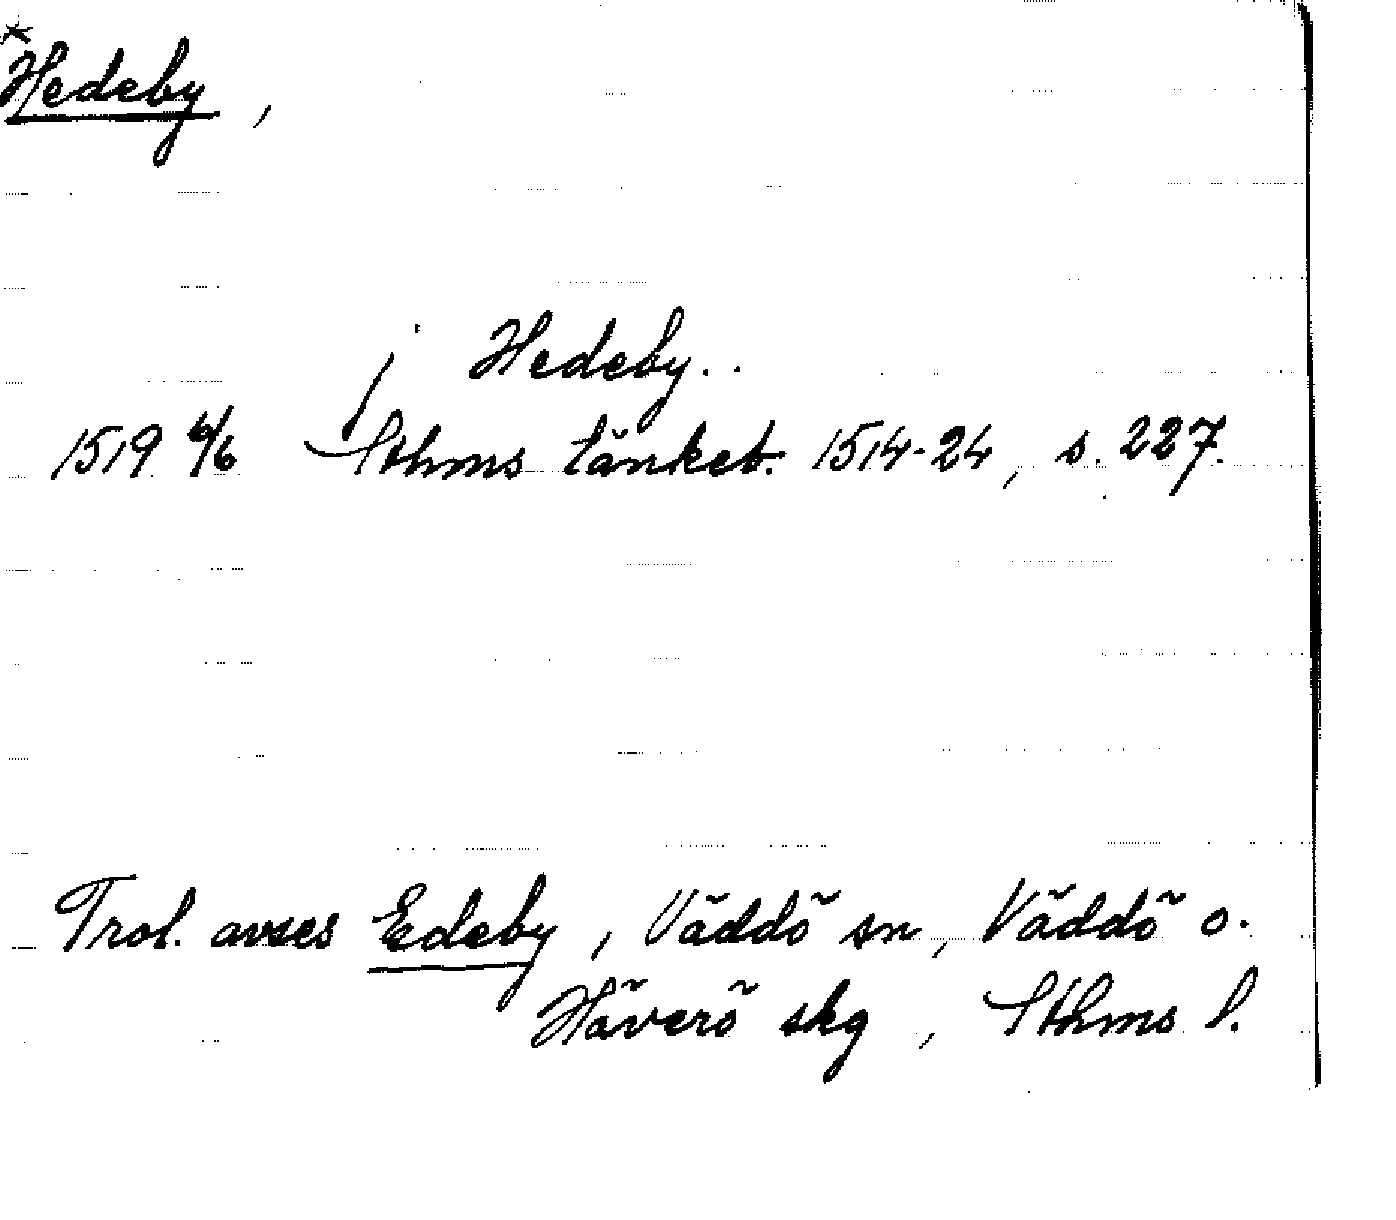 *
Hedeby,
j Hedeby..
1519 6/6 Sthms tänkeb. 1514-24, s. 227.
Trol. avses Edeby, Väddö sn, Väddö o.
Häverö skg, Sthms l.